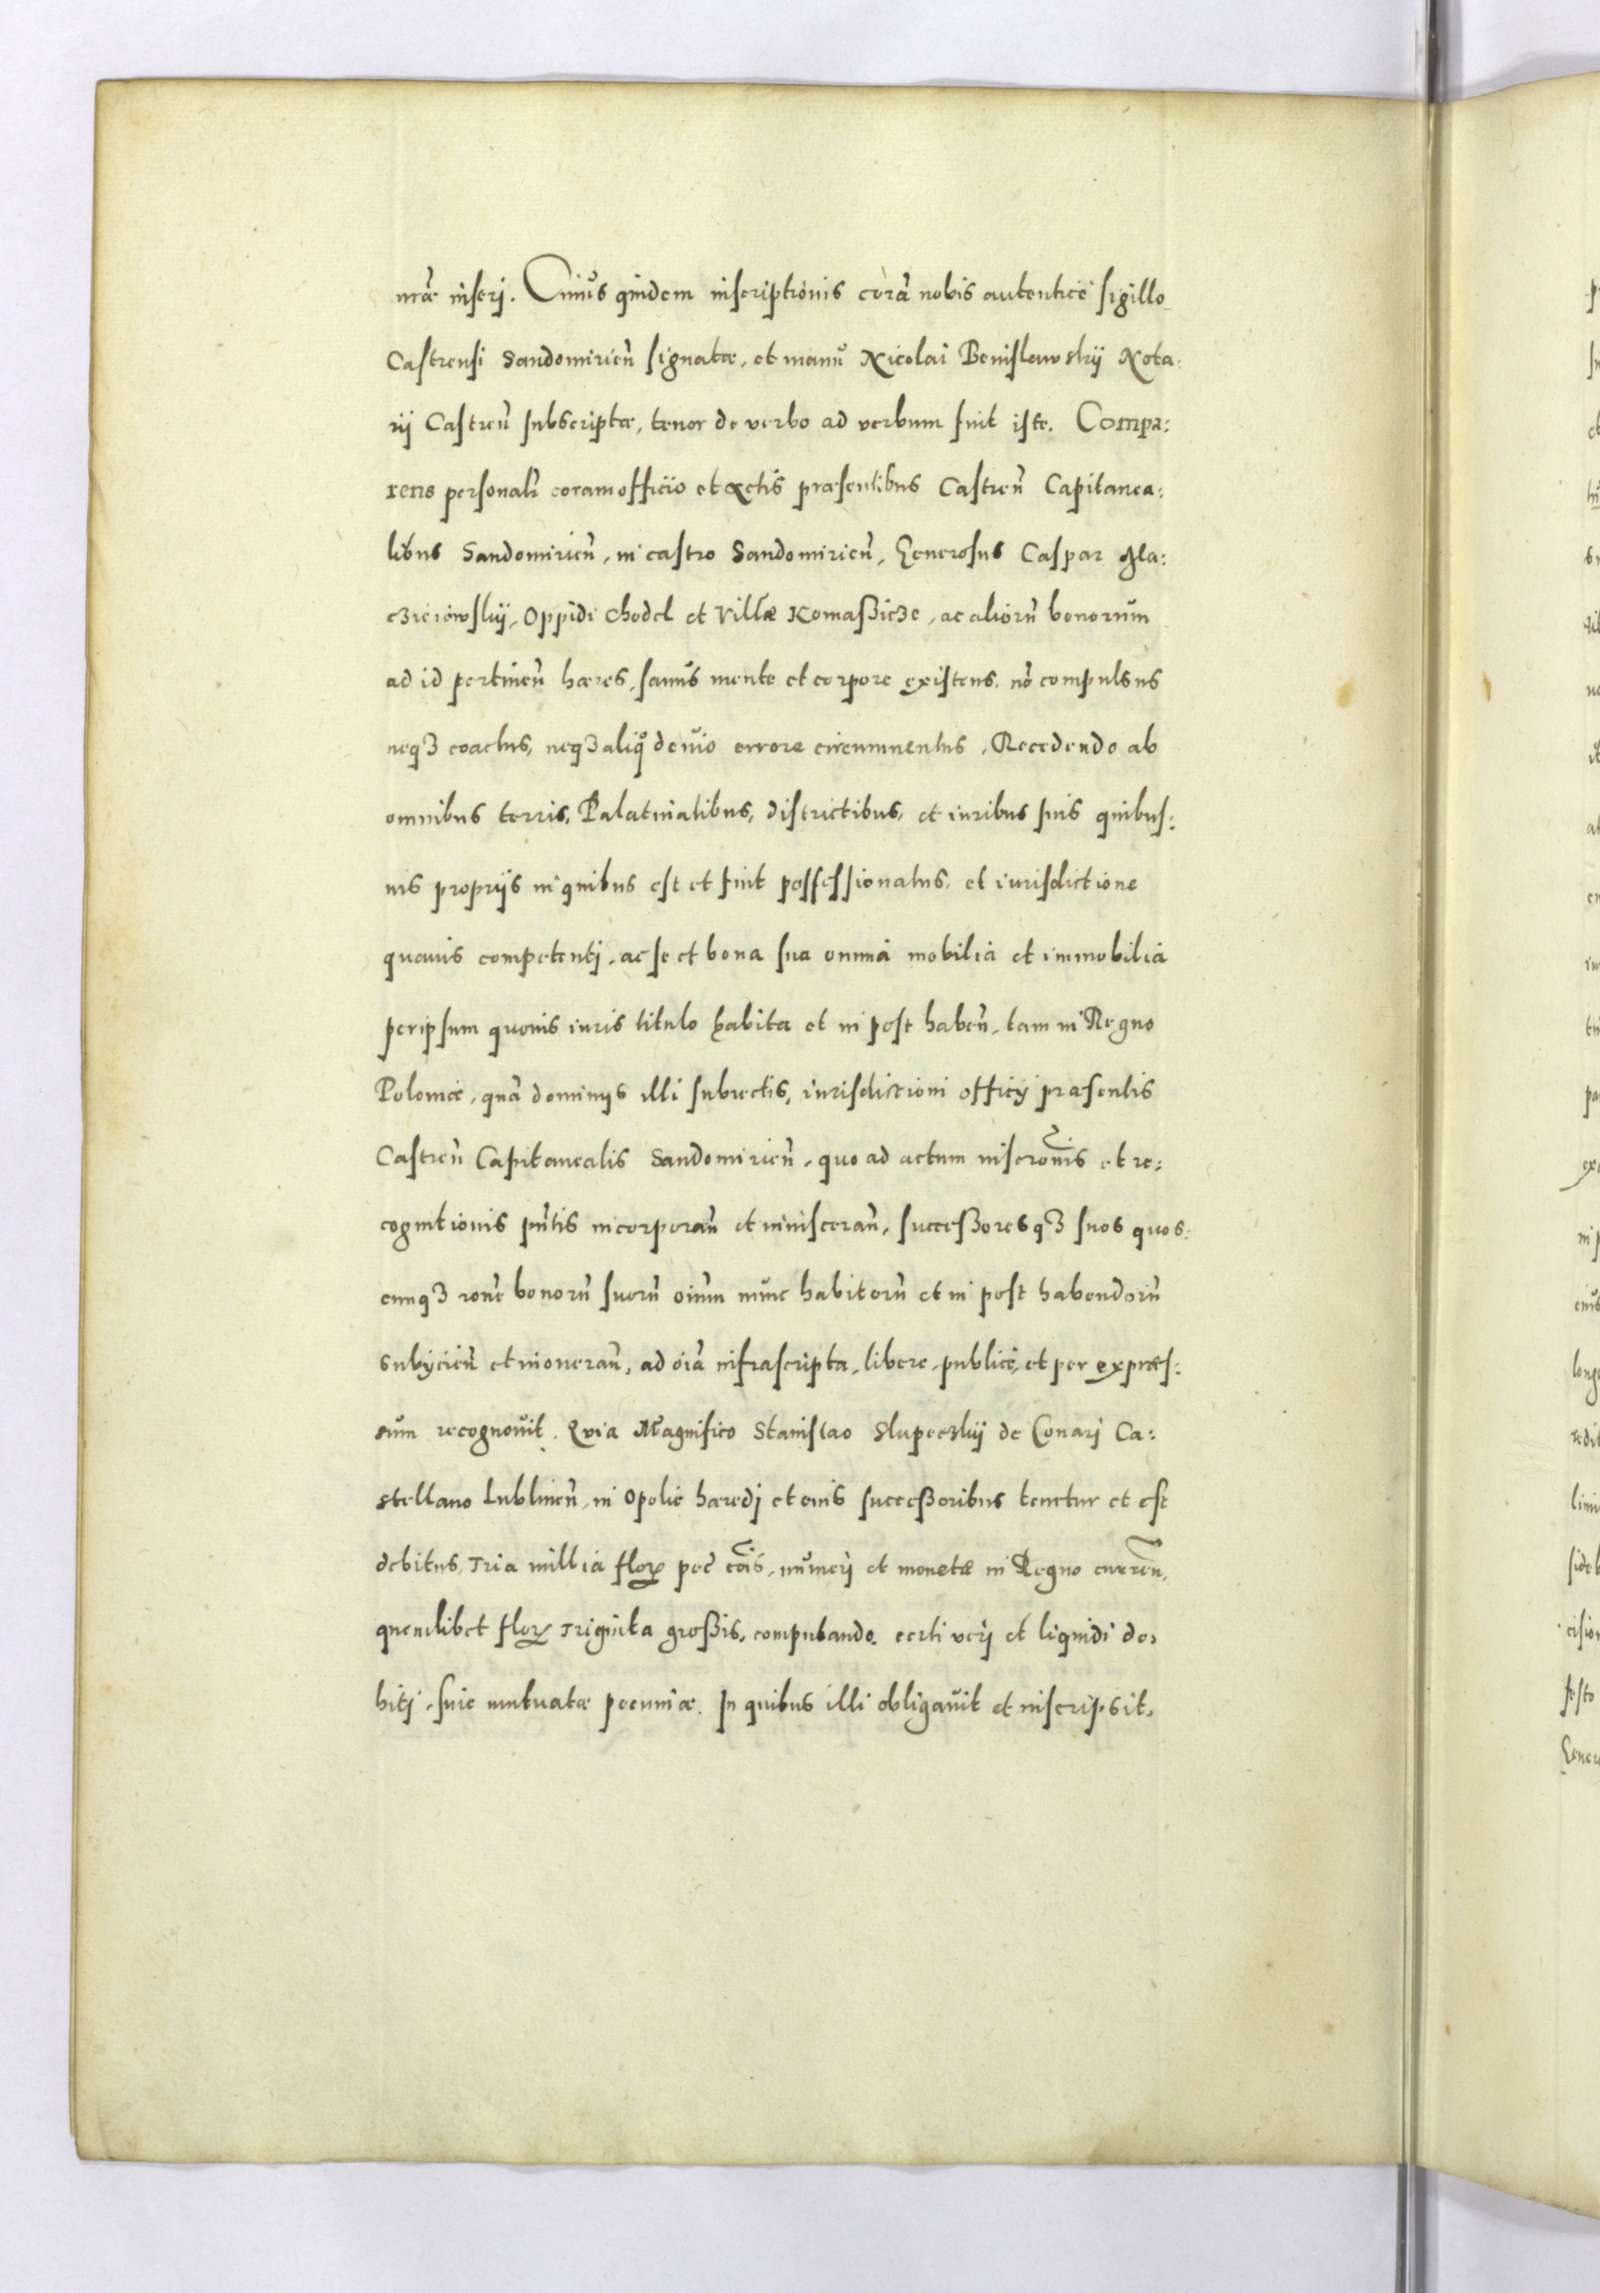 nrãe inseri. Cuius quidem inscriptionis corã nobis autentice sigillo
Castrensi Sandomirieñ signatæ, et manu Nicolai Benislawskij Nota:
rij Castreñ subscriptæ, tenor de verbo ad verbum fuit iste. Compa:
rens personalr̃ coram officio et actis præsentibus Castreñ Capitanea:
libus Sandomirieñ, in castro Sandomirieñ, Generosus Caspar
czieiowskij, Oppidi Chodel et Villæ Komaßicze, ac aliorũ bonorum
ad id pertineñ hæres, sanus mente et corpore existens, nõ compulsus
neqꝫ coactus, neqꝫ aliquo deuio errore circumuentus, Recedendo ab
omnibus terris, Palatinatibus, districtibus, et iuribus suis quibus:
uis proprijs in quibus est et fuit possessionatus, et iurisdictione
quauis competentj, ac se et bona sua omnia mobilia et immobilia
per ipsum quouis iuris titulo habita et in post habeñ, tam in Regno
Poloniæ, quã dominijs illi subiectis, iurisdictioni officij præsentis
Castreñ Capitanealis Sandomirieñ, quo ad actum inscrõnis et re:
cognitionis pñtis incorporañ et inuiscerañ, successoresqꝫ suos quos:
cunqꝫ rõne bonorũ suorũ oĩum nunc habitorũ et in post habendorũ
subijcieñ et inonerañ, ad oĩa infrascripta, libere, publice, et per expræs:
sum recognouit. Quia Magnifico Stanislao Slupeczkij de Conarj Ca:
stellano Lublineñ, in Opolie hæredj et eius successoribus tenetur et est
debitus, Tria millia floꝝ pec̃ cõis, numerj et monetæ in Regno curreñ,
quemlibet floꝝ Triginta grossis, computando. certi verj et liquidi de,
bitj, suie mutuatæ pecuniæ. In quibus illi obligauit et inscripsit,